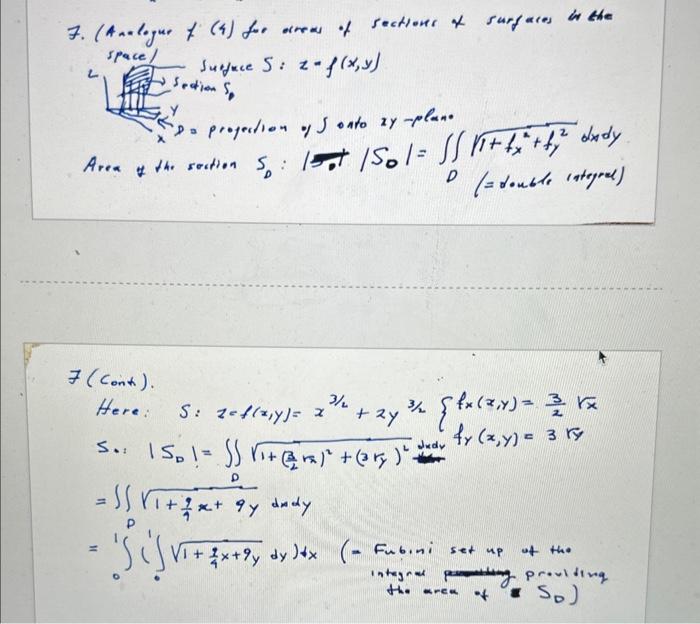 7. (Analogue of (4) for areas of sections of surfaces in the
space)
Surface S: z = f(x,y)
Z
Section S_D
Y
X
D = projection of S onto xy-plane
Area of the section S_D: |S_D| = ∬_D √(1 + f_x² + f_y²) dxdy
(= double integral)
7 (Cont).
Here: S: z = f(x,y) = x^{3/2} + 2y^{3/2} { f_x(x,y) = 3/2 √x
So: |S_D| = ∬_D √(1 + (3/2 √x)² + (3√y)²) dxdy f_y(x,y) = 3√y
= ∬_D √(1 + 9/4 x + 9y) dxdy
= ∫_0^1 (∫_0^1 √(1 + 9/4 x + 9y) dy) dx (= Fubini set up of the
integral providing
the area of S_D)